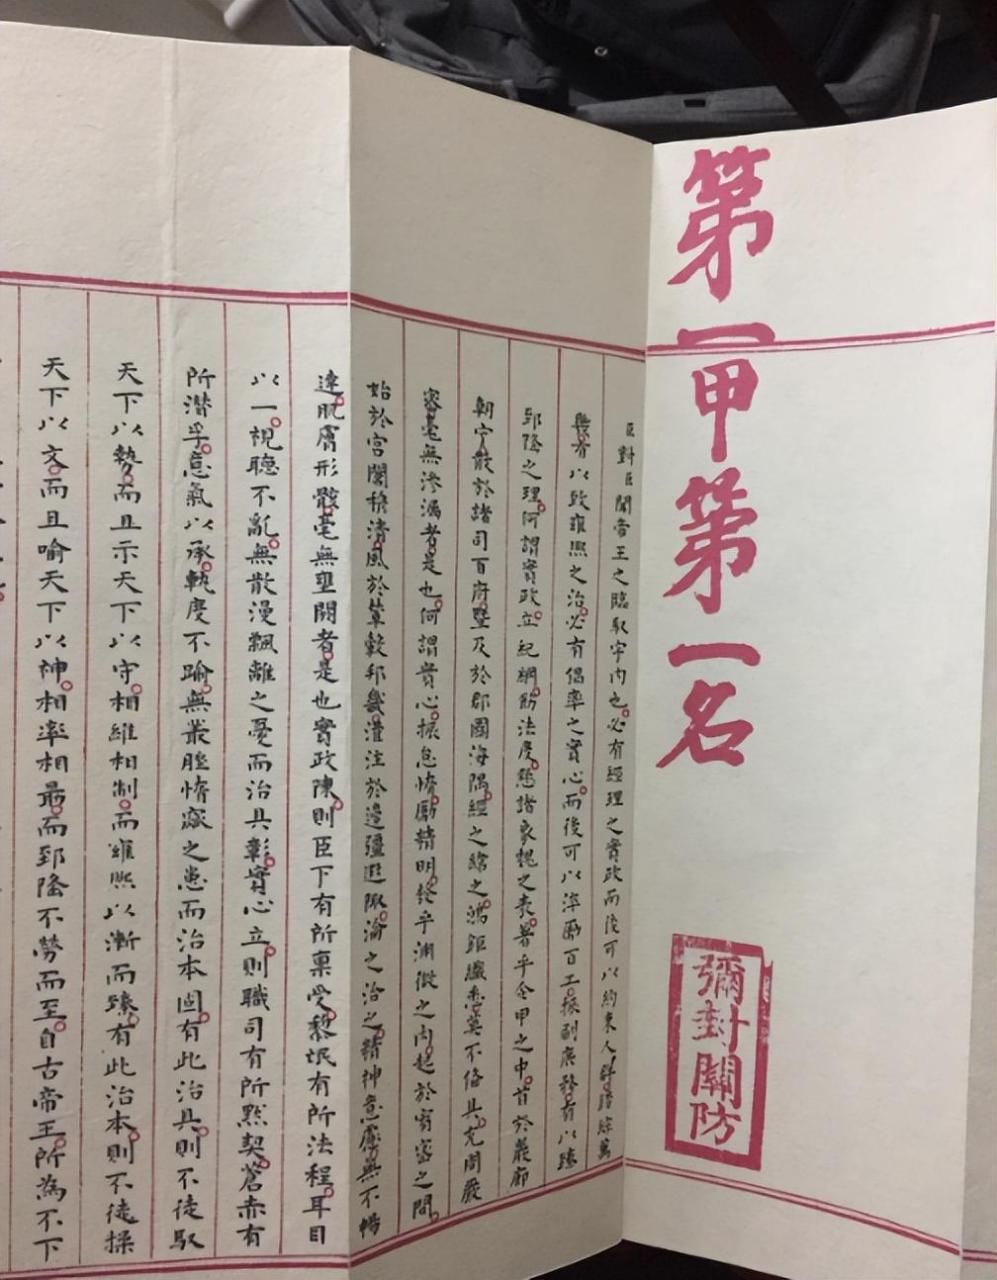 第一甲第一名
彌封關防
臣對臣聞帝王之臨馭宇內也必有經理之實政而後可以約束人群錯綜萬
幾有以致雍熙之治必有倡率之實心而後可以淬勵百工振刷庶務有以臻
郅隆之理何謂實政立紀綱飭法度懸諸象魏之表著乎令甲之中首於巖廊
朝宁散於諸司百府暨及於郡國海隅經之緯之鴻鉅纖悉莫不俻具充周嚴
密毫無滲漏者是也何謂實心振怠惰勵精明發乎淵微之內起於宥密之間
始於宮闈穆清風於輦轂邦畿灌注於邊疆遐陬淪之洽之精神意慮無不暢
達肌膚形骸毫無壅閼者是也實政陳則臣下有所稟受黎氓有所法程耳目
以一視聽不亂無散漫飄離之憂而治具彰實心立則職司有所默契蒼赤有
所潛孚意氣以承軌度不踰無叢脞惰窳之患而治本固有此治具則不徒馭
天下以勢而且示天下以守相維相制而雍熙以漸而臻有此治本則不徒操
天下以文而且喻天下以神相率相勗而郅隆不勞而至自古帝王所為不下